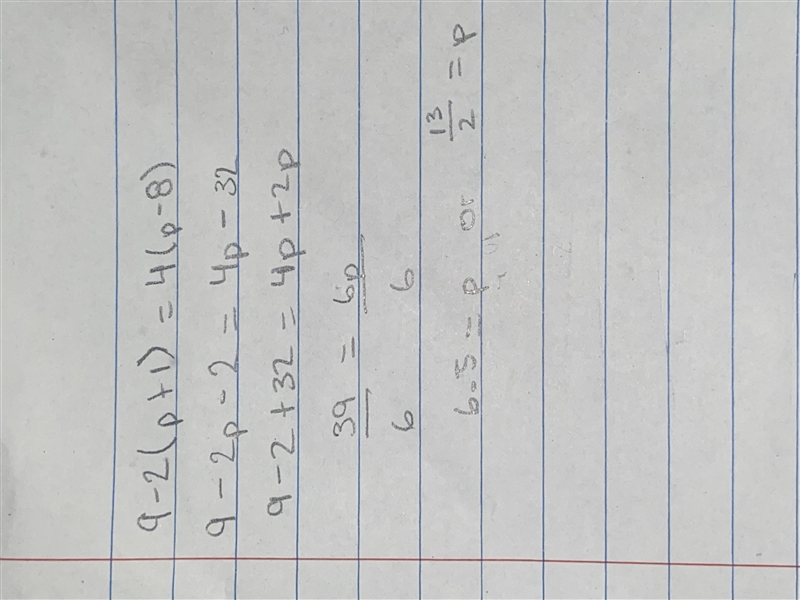 9-2(p+1) = 4(p-8)
9-2p-2 = 4p-32
9-2+32 = 4p+2p
39 = 6p
6 6
6.5 = p or 13/2 = p